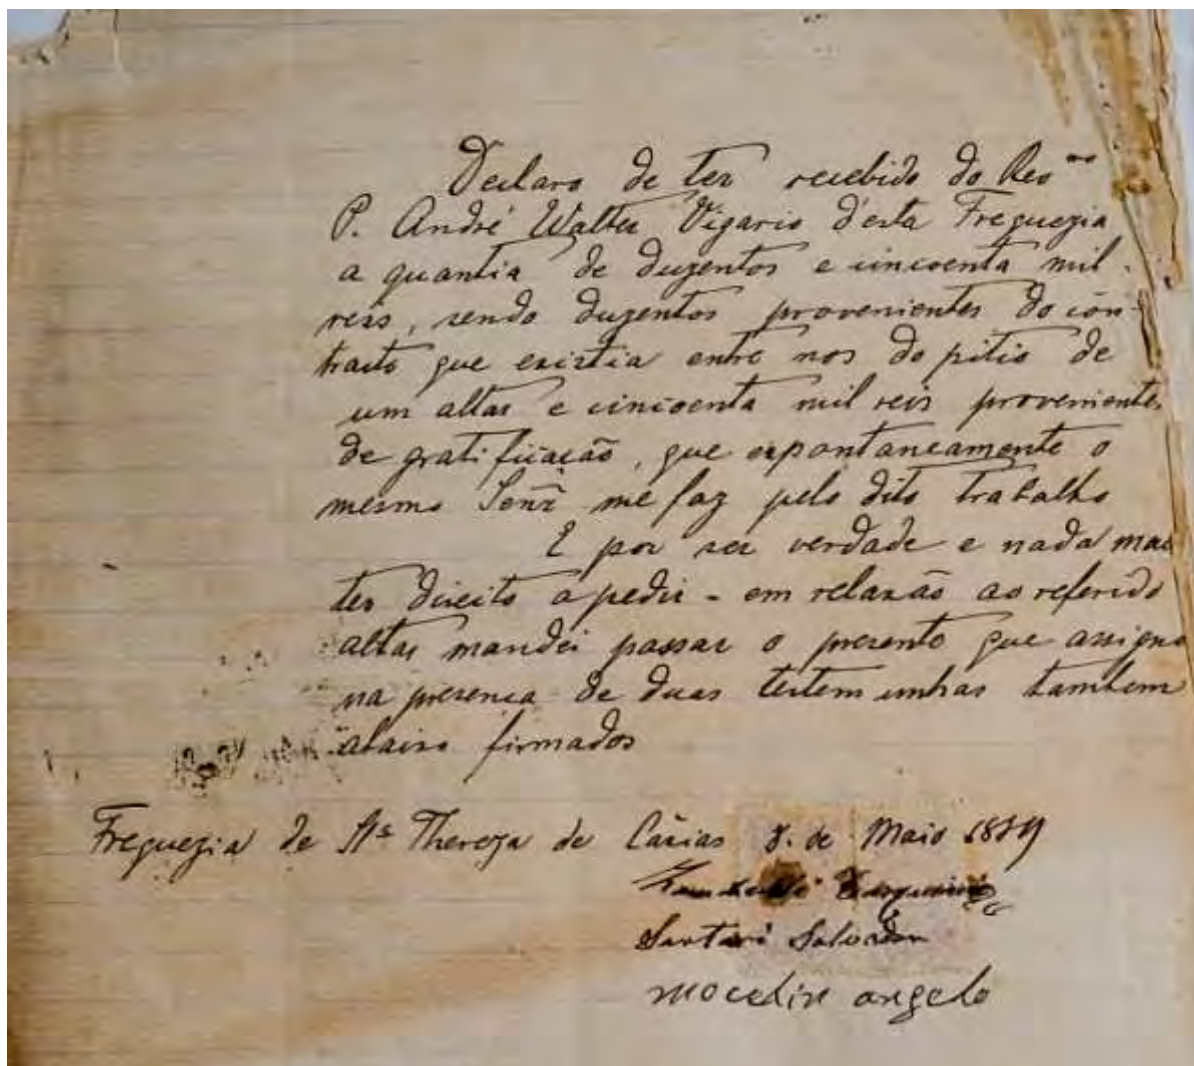 Declaro de ter recebido do Reo.mo
P. André Walter Vigario d'esta Freguezia
a quantia de duzentos e cincoenta mil
reis, sendo duzentos provenientes do con-
tracto que existia entre nos do pitio de
um altar e cincoenta mil reis provenientes
de gratificação, que espontaneamente o
mesmo Senr̃ me faz pelo dito trabalho
E por ser verdade e nada mais
ter direito a pedir - em relazão ao referido
altar mandei passar o presente que assigno
na presença de duas testemunhas tambem
abaixo firmados
Freguezia de Sta Thereza de Caxias 8. de Maio
Tarquinio
Sartori Salvador
Mocelin angelo